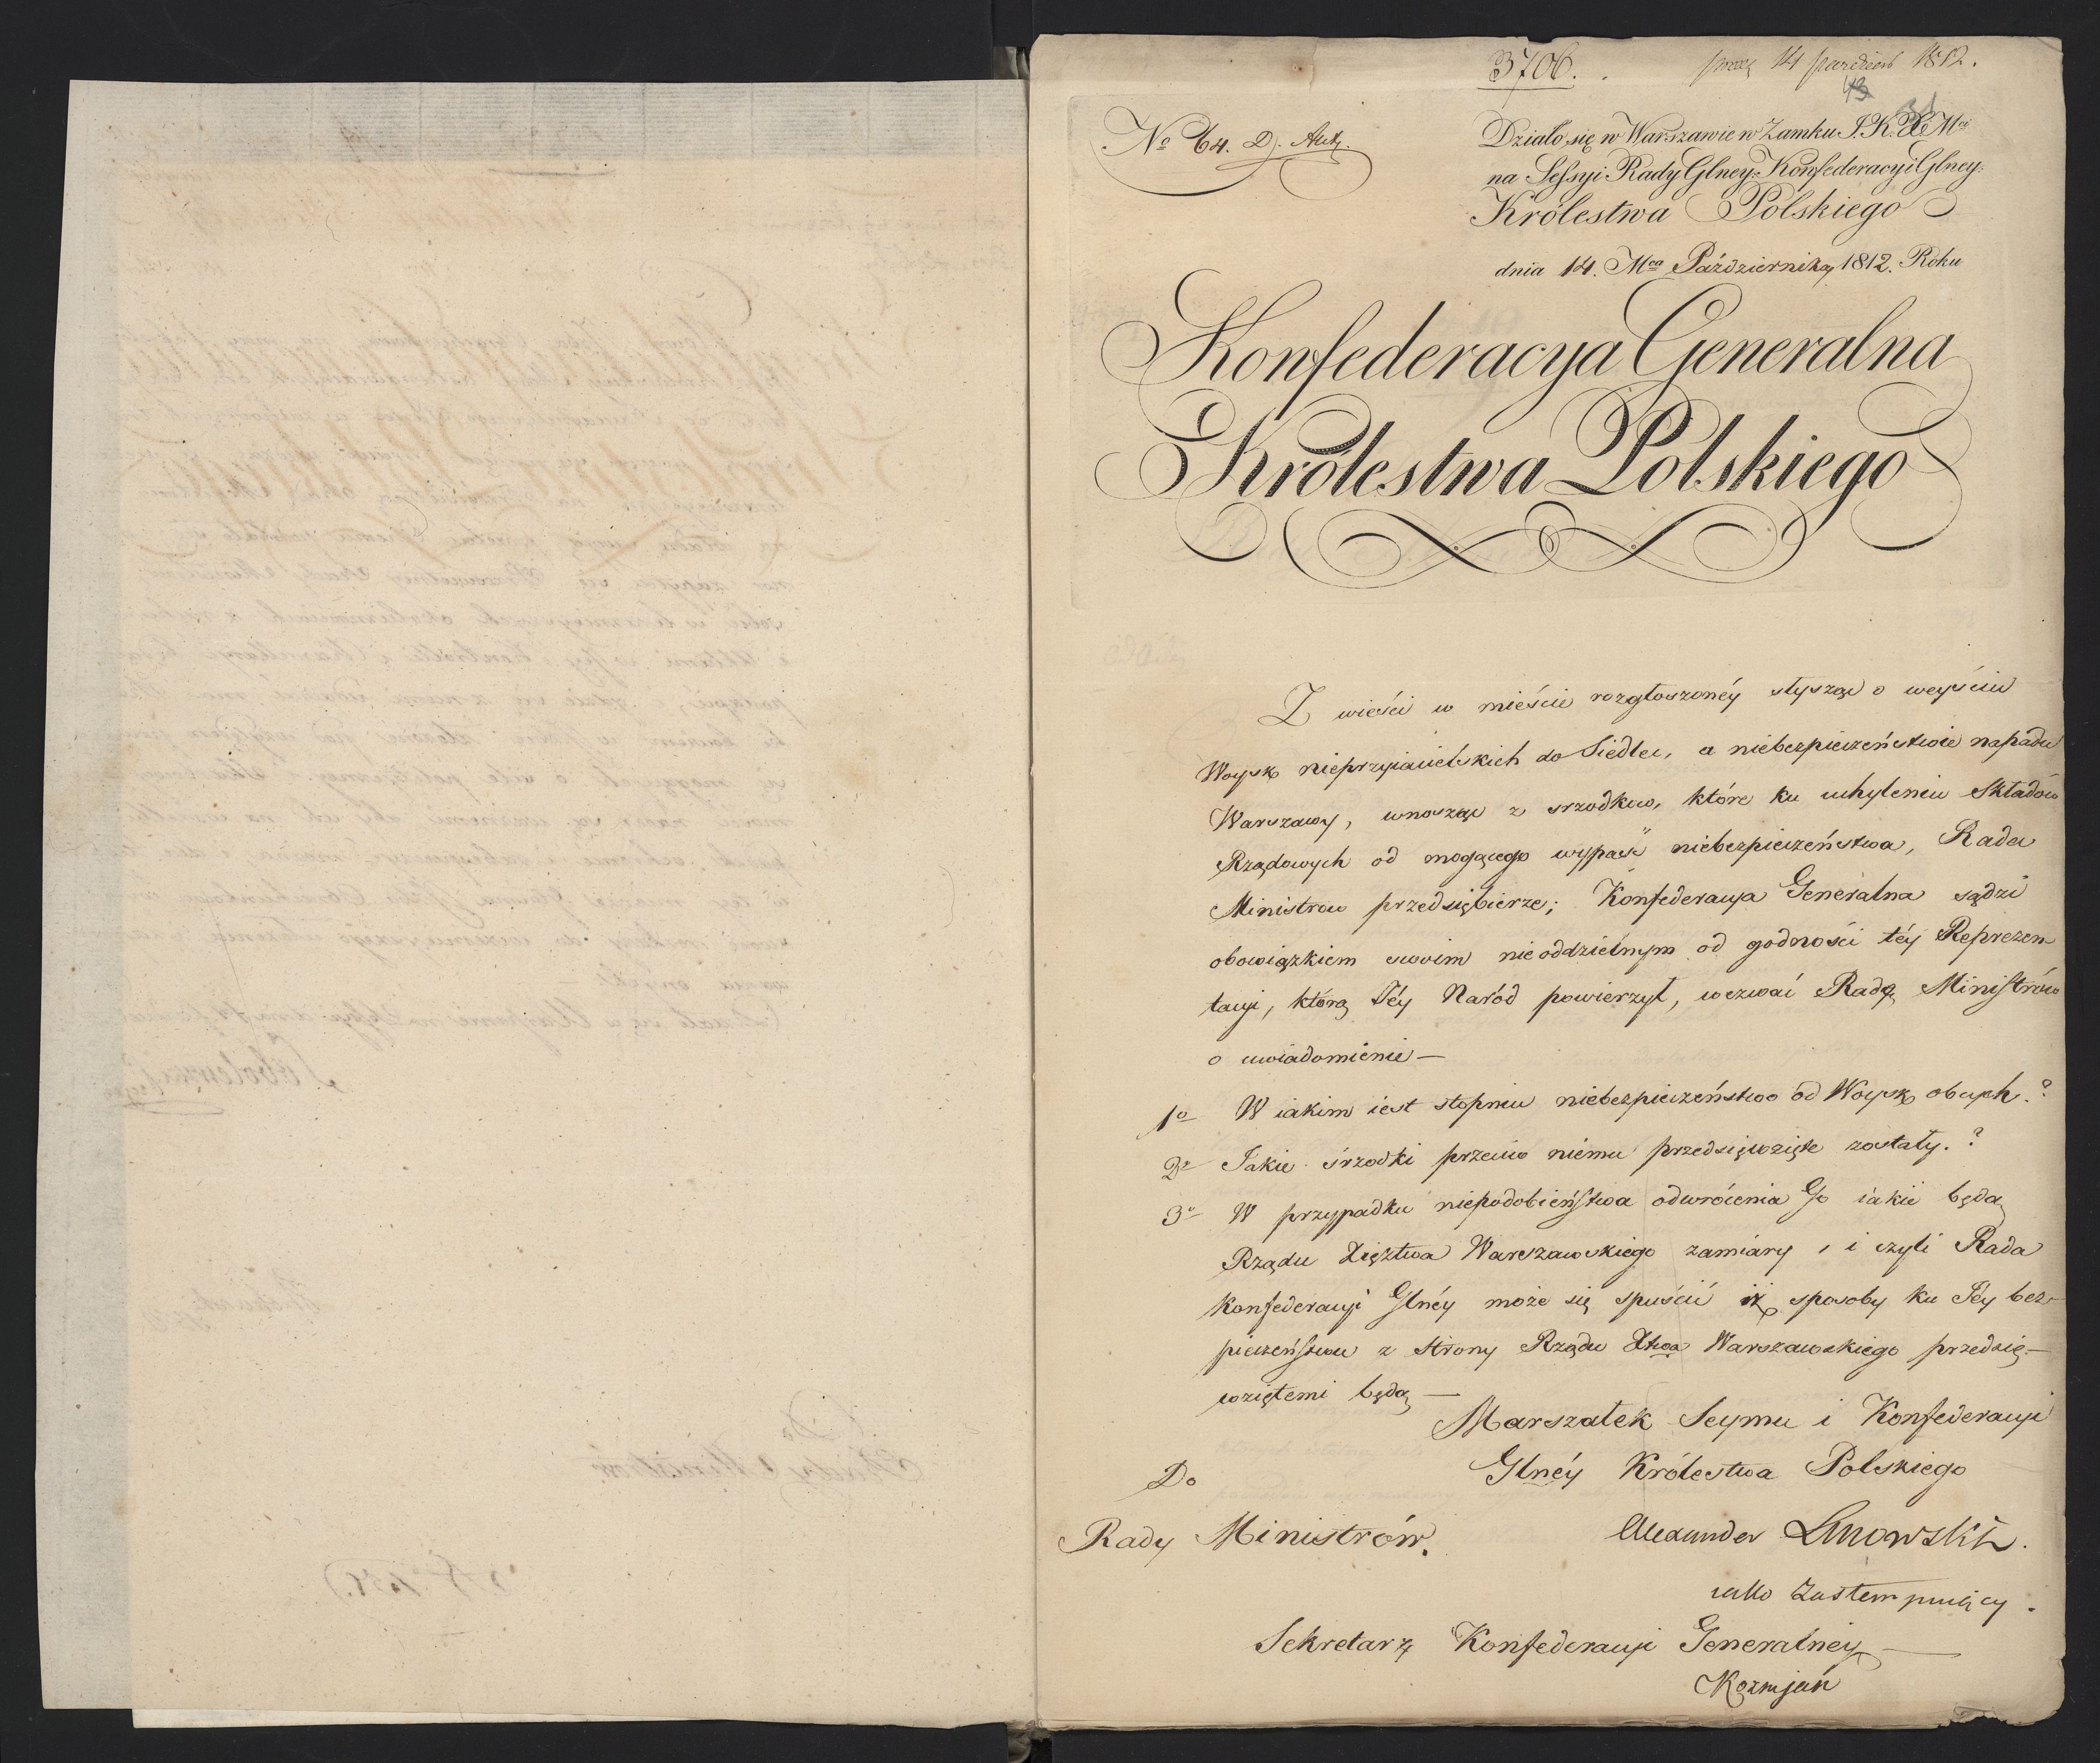 3706.
14 paźdźier 1812.
43
No 64. D. Akt.
Działo się w Warszawie w Zamku J. K. X. Mci
na Sessyi Rady Glney Konfederacyi Glney.
Królestwa Polskiego
dnia 14. Mca Października 1812. Roku
Konfederacya Generalna
Królestwa Polskiego
Z wieści w mieście rozgłoszonéy słysząc o weyściu
Woysk nieprzyiacielskich do Siedlec, a niebezpieczeństwie napadu
Warszawy, wnosząc z srzodków, które ku uchyleniu Składów
Rządowych od mogącego wypaść niebezpieczeństwa, Rada
Ministrow przedsiębierze; Konfederacya Generalna sądzi
obowiązkiem swoim nieoddzielnym od godności téy Reprezen
tacyi, którą Jéy Naród powierzył, wezwać Radę Ministrów
o uwiadomienie —
1o W iakim iest stopniu niebezpieczeństwo od Woysk obcych.?
2o Jakie śrzodki przeciw niému przedsięwzięte zostały.?
3o W przypadku niepodobieństwa odwrócenia Go iakie będą
Rządu Xięztwa Warszawskiego zamiary, i czyli Rada
Konfederacyi Glnéy może się spuścić iż sposoby ku Jéy bez-
pieczeństwu z strony Rządu Xtwa Warszawskiego przedsię-
wziętemi będą —
Marszałek Seymu i Konfederacyi
Glnéy Królestwa Polskiego
Do
Rady Ministrów.
Alexander Linowski.
iako Zastempuiący.
Sekretarz Konfederacyi Generalney —
Kozmjan